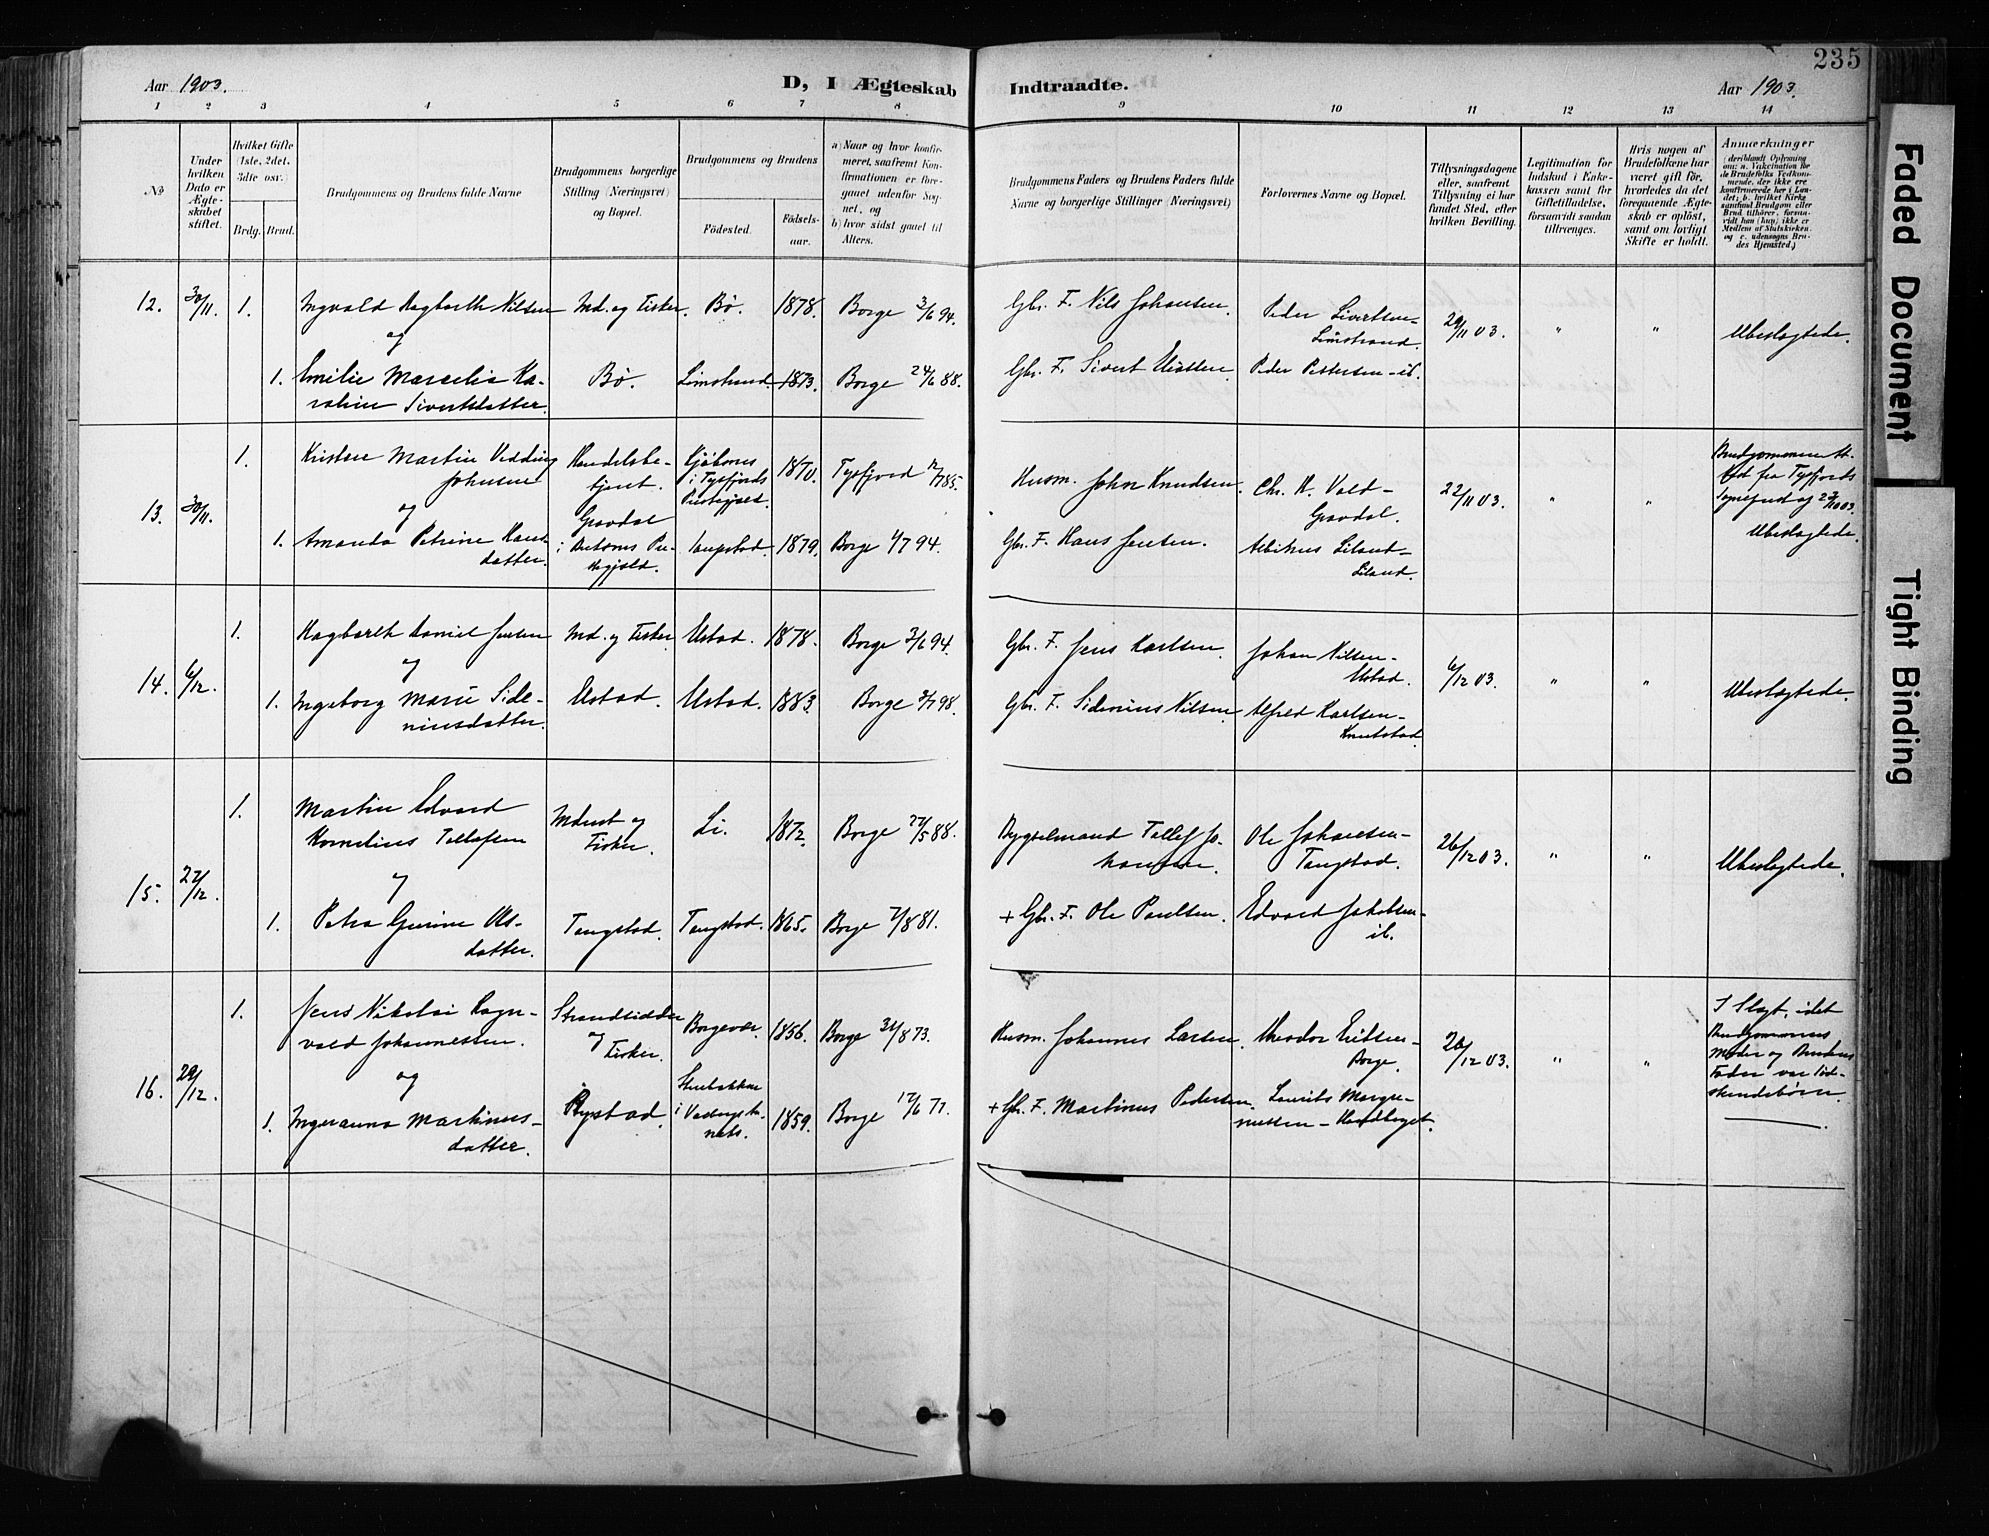 235
Aar 1903.
D, I Ægteskab
Indtraadte.
Aar 1903.
1 2 3 4 5 6 7 8
9 10 11 12 13 14
No
Under hvilken Dato er Ægteskabet stiftet.
Hvilket Gifte (1ste, 2det, 3die osv.)
Brdg. Brud.
Brudgommens og Brudens fulde Navne
Brudgommens borgerlige Stilling (Næringsvei) og Bopæl.
Brudgommens og Brudens
Fødested.
Fødselsaar.
a) Naar og hvor konfirmeret, saafremt Konfirmationen er foregaaet udenfor Sognet, og
b) hvor sidst gaaet til Alters.
Brudgommens Faders og Brudens Faders fulde Navne og borgerlige Stillinger (Næringsvei)
Forlovernes Navne og Bopæl.
Tillysningsdagene eller, saafremt Tillysning ei har fundet Sted, efter hvilken Bevilling.
Legitimation for Indskud i Enkekassen samt for Giftetilladelse, forsaavidt saadan tiltrænges.
Hvis nogen af Brudefolkene har været gift før, hvorledes da det foregaaende Ægteskab er opløst, samt om lovligt Skifte er holdt.
Anmærkninger
(deriblandt Oplysning om: a. Vakcination for de Brudefolks Vedkommende, der ikke ere konfirmerede her i Landet; b. hvilket Kirkesamfund Brudgom eller Brud tilhører, forsaavidt han (hun) ikke er Medlem af Statskirken, og c. udensogns Brudes Hjemsted.)
12. 30/11. 1. Ingvald Hagbarth Nilsen Md. og Fisker. Bø. 1878. Borge 3/6 94. Gbr. F. Nils Johansen. Peder Sivertsen – Limstrand. 29/11 03. " " Ubeslægtede.
og
1. Emilie Marcelie Karoline Sivertsdatter. Bø. Limstrand 1873. Borge 24/6 88. Gbr. F. Sivert Peder Pettersen – ib.
13. 30/11. 1. Kristen Martin Vedding Johnsen Handelsbetjent. i Tysfjords Præstegjeld. 1870. Tysfjord 12/7 85. Husm. Johan Knudsen. Chr. H. Vold – Gravdal. 22/11 03. " "
og
1. Amanda Petrine Hansdatter. Gravdal i Buksnes Præstegjeld. Tangstad. 1879. Borge 1/7 94. Gbr. F. Hans Jensen. Albikus Liland – Liland. Ubeslægtede.
14. 6/12. 1. Hagbarth Daniel Jensen Md. og Fisker Ustad. 1878. Borge 3/6 94. Gbr. F. Jens Karlsen. Johan Nilsen – Ustad. 6/12 03. " " Ubeslægtede.
og
1. Ingeborg Marie Sideniusdatter. Ustad. Ustad. 1883. Borge 3/7 98. Gbr. F. Sidenius Nilsen Alfred Karlsen – Knutstad.
15. 27/12. 1. Martin Edvard Kornelius Tollefsen Mdmst og Fisker. Li. 1872. Borge 27/5 88. Bygselmand Tollef Johansen. Ole Johansen – Tangstad. 26/12 03. " " Ubeslægtede.
og
1. Petra Gurine Olsdatter. Tangstad. Tangstad. 1865. Borge 7/8 81. + Gbr. F. Ole Paulsen. Edvard Jakobsen – ib.
16. 29/12. 1. Jens Nikolai Ragnvald Johannessen. Strandsidder og Fisker. Borgevær. 1856. Borge 31/8 73. Husm. Johannes Larsen. Theodor Eritsen – Borge. 26/12 03. " " I Slægt, idet Brudgommens Moder og Brudens Fader var Sødskendebørn.
og
1. Ingeranna Martinusdatter. Rystad. 1859. Borge 17/6 77. + Gbr. F. Martinus Pedersen. Laurits
Faded Document
Tight Binding